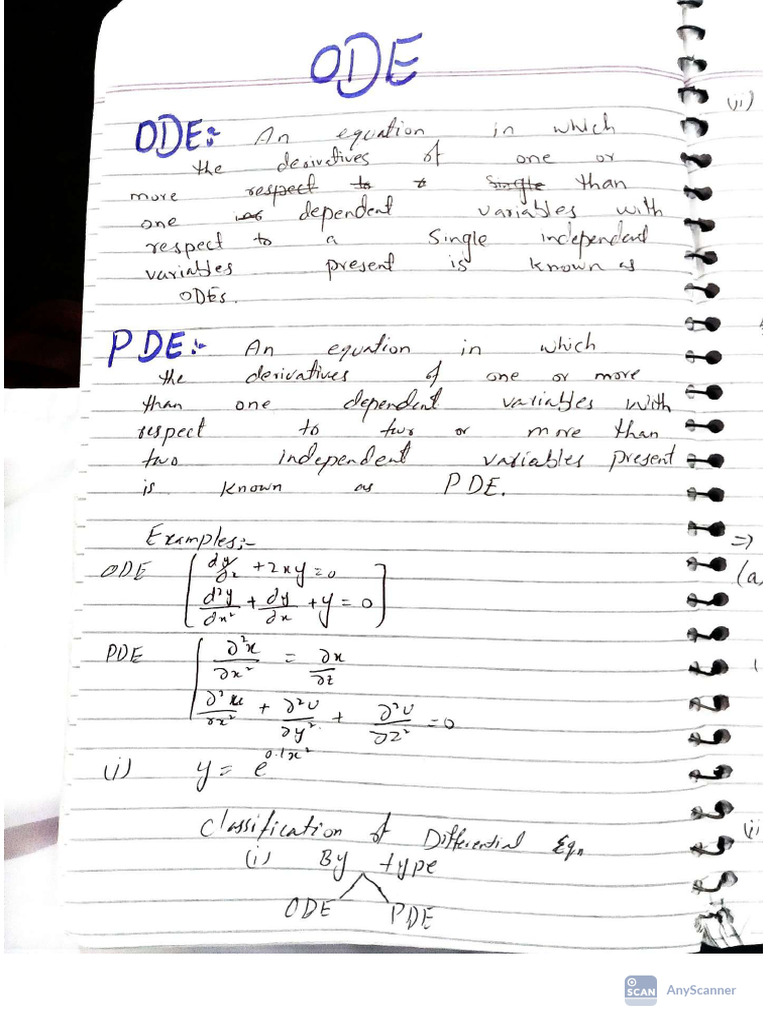 ODE
ODE:- An equation in which
the derivatives of one or
more respect to single than
one dependent variables with
respect to a single independent
variables present is known as
ODEs.
PDE:- An equation in which
the derivatives of one or more
than one dependent variables with
respect to two or more than
two independent variables present
is known as PDE.
Examples:-
ODE dy/dx + 2xy = 0
d²y/dx² + dy/dx + y = 0
PDE ∂²x/∂x² = ∂x/∂t
∂²u/∂x² + ∂²U/∂y² + ∂²U/∂Z² = 0
(i) y = e^0.1x²
Classification of Differential Eqn
(i) By type
ODE PDE
(ii)
=>
(a)
(ii)
SCAN AnyScanner